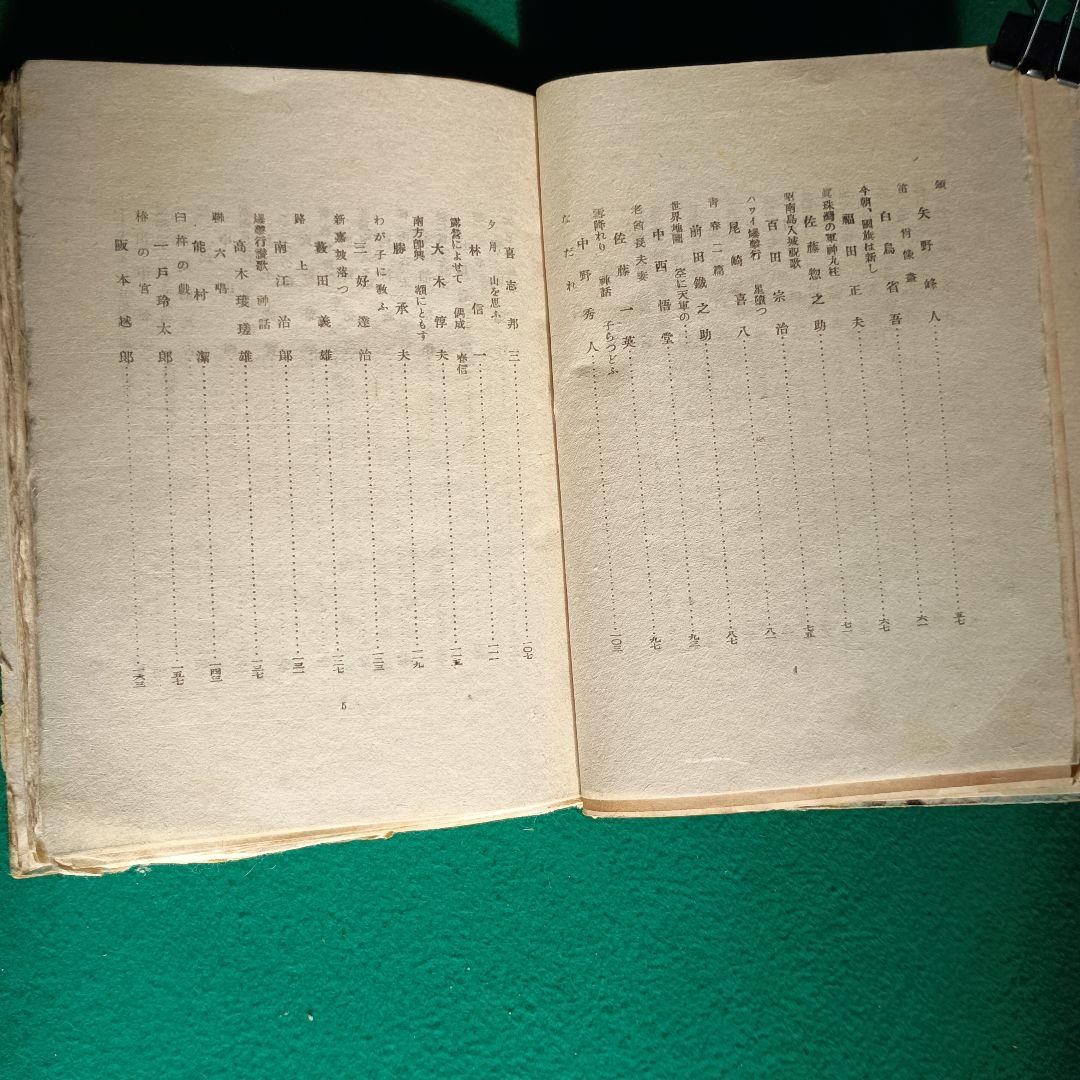 頌
矢野峰人……五七
笛　肖像畫
白鳥省吾……六一
今朝、國旗は新し
福田正夫……六七
眞珠灣の軍神九柱
佐藤惣之助……七一
昭南島入城祝歌
百田宗治……七五
ハワイ爆撃行　星墮つ
尾崎喜八……八一
青春二篇
前田鐵之助……八七
世界地圖　空に天軍の…
中西悟堂……九三
老酋長夫妻
佐藤一英……九七
雪降れり　神話　子らつどふ
中野秀人……一〇三
なだれ
4
喜志邦三……一〇七
夕月　山を思ふ
林信一……一一一
露營によせて　偶成　春信
大木惇夫……一一五
南方即興　頌にともす
勝承夫……一一九
わが子に敎ふ
三好達治……一二三
新嘉坡落つ
藪田義雄……一二七
路上
南江治郎……一三一
爆撃行讃歌　神話
高木瑳雄……一三七
聯六唱
能村潔……一四三
臼杵の戯
一戸玲太郎……一五七
椿の宮
阪本越郎……一六三
5